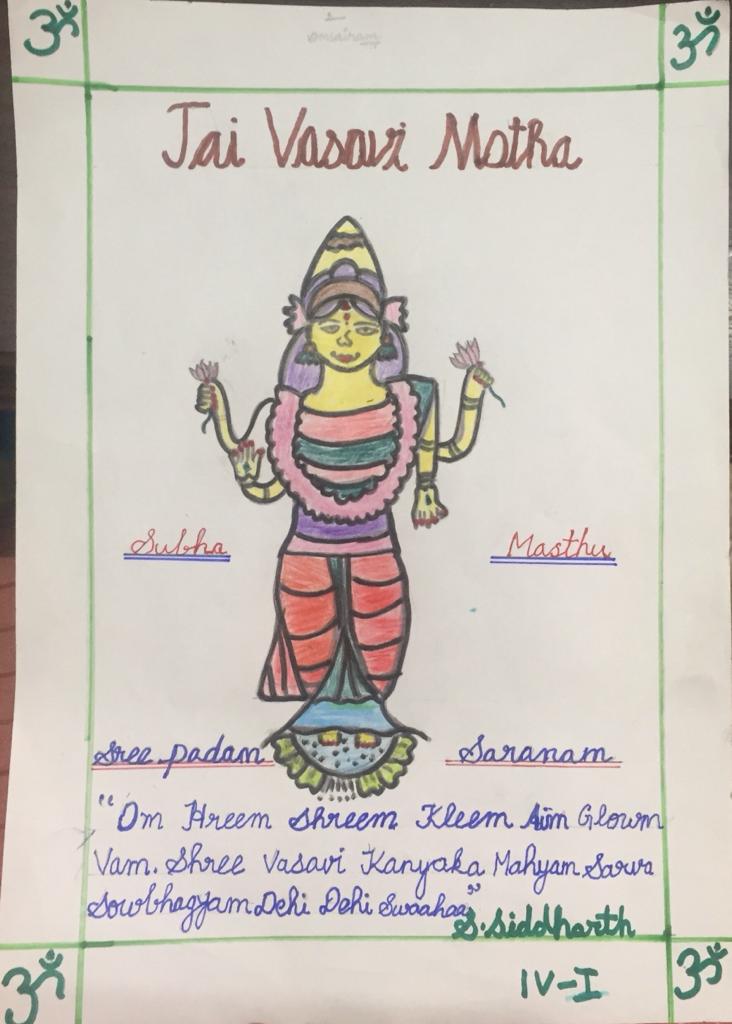 ॐ ॐ
omsairam
Jai Vasavi Matha
Subha Masthu
Sree padam Saranam
"Om Hreem Shreem Kleem Aim Glowm
Vam. Shree Vasavi Kanyaka Mahyam Sarva
Sowbhagyam Dehi Dehi Swaahaa"
S. Siddharth
IV-I
ॐ ॐ